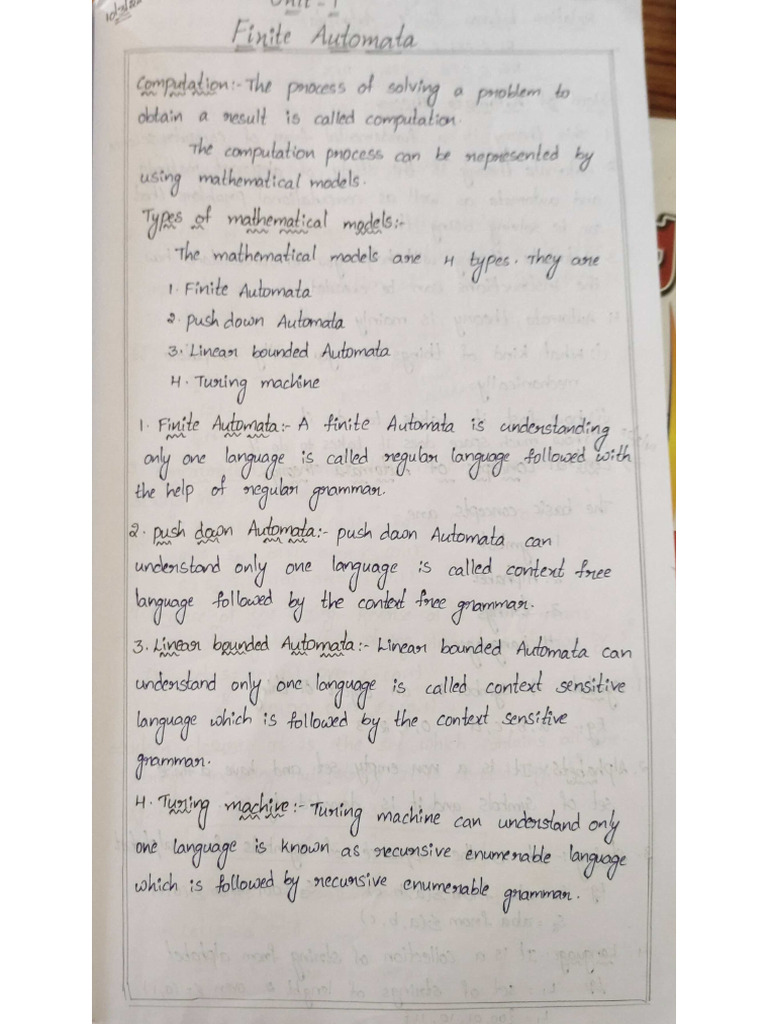 Unit - 1
Finite Automata
Computation:- The process of solving a problem to
obtain a result is called computation.
The computation process can be represented by
using mathematical models.
Types of mathematical models:-
The mathematical models are 4 types. They are
1. Finite Automata
2. push down Automata
3. Linear bounded Automata
4. Turing machine
1. Finite Automata:- A finite Automata is understanding
only one language is called regular language followed with
the help of regular grammar.
2. push down Automata:- push down Automata can
understand only one language is called context free
language followed by the context free grammar.
3. Linear bounded Automata:- Linear bounded Automata can
understand only one language is called context sensitive
language which is followed by the context sensitive
grammar.
4. Turing machine:- Turing machine can understand only
one language is known as recursive enumerable language
which is followed by recursive enumerable grammar.